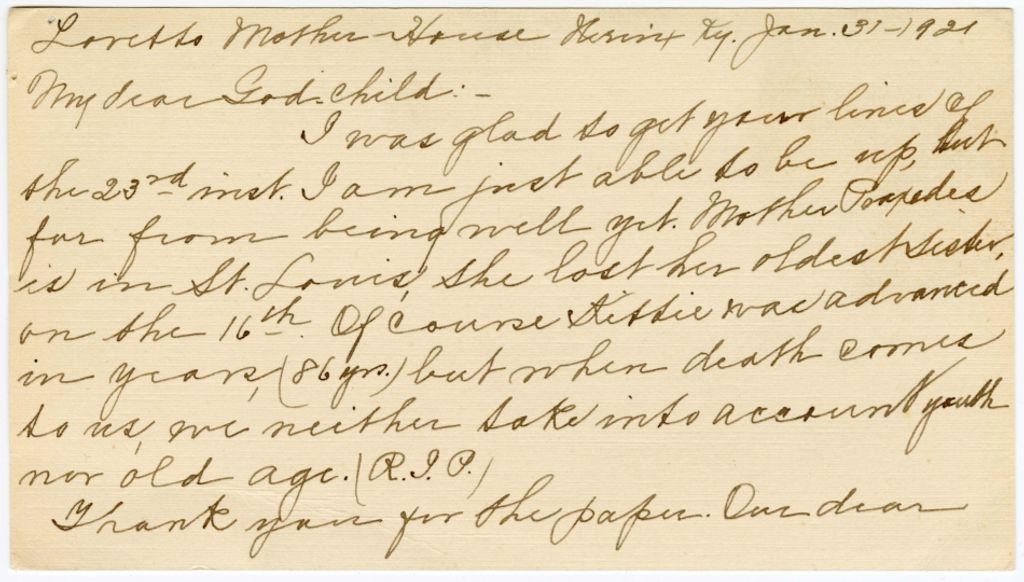 Loretto Mother-House Nerinx Ky. Jan. 31-1921
My dear God-child:-
I was glad to get your lines of
the 23rd inst. I am just able to be up, but
far from being well yet. Mother Praxedes
is in St. Louis, she lost her oldest sister,
on the 16th. Of course Kittie was advanced
in years, (86 yrs.) but when death comes
to us, we neither take into account youth
nor old age. (R.I.P.)
Thank you for the paper. Our dear